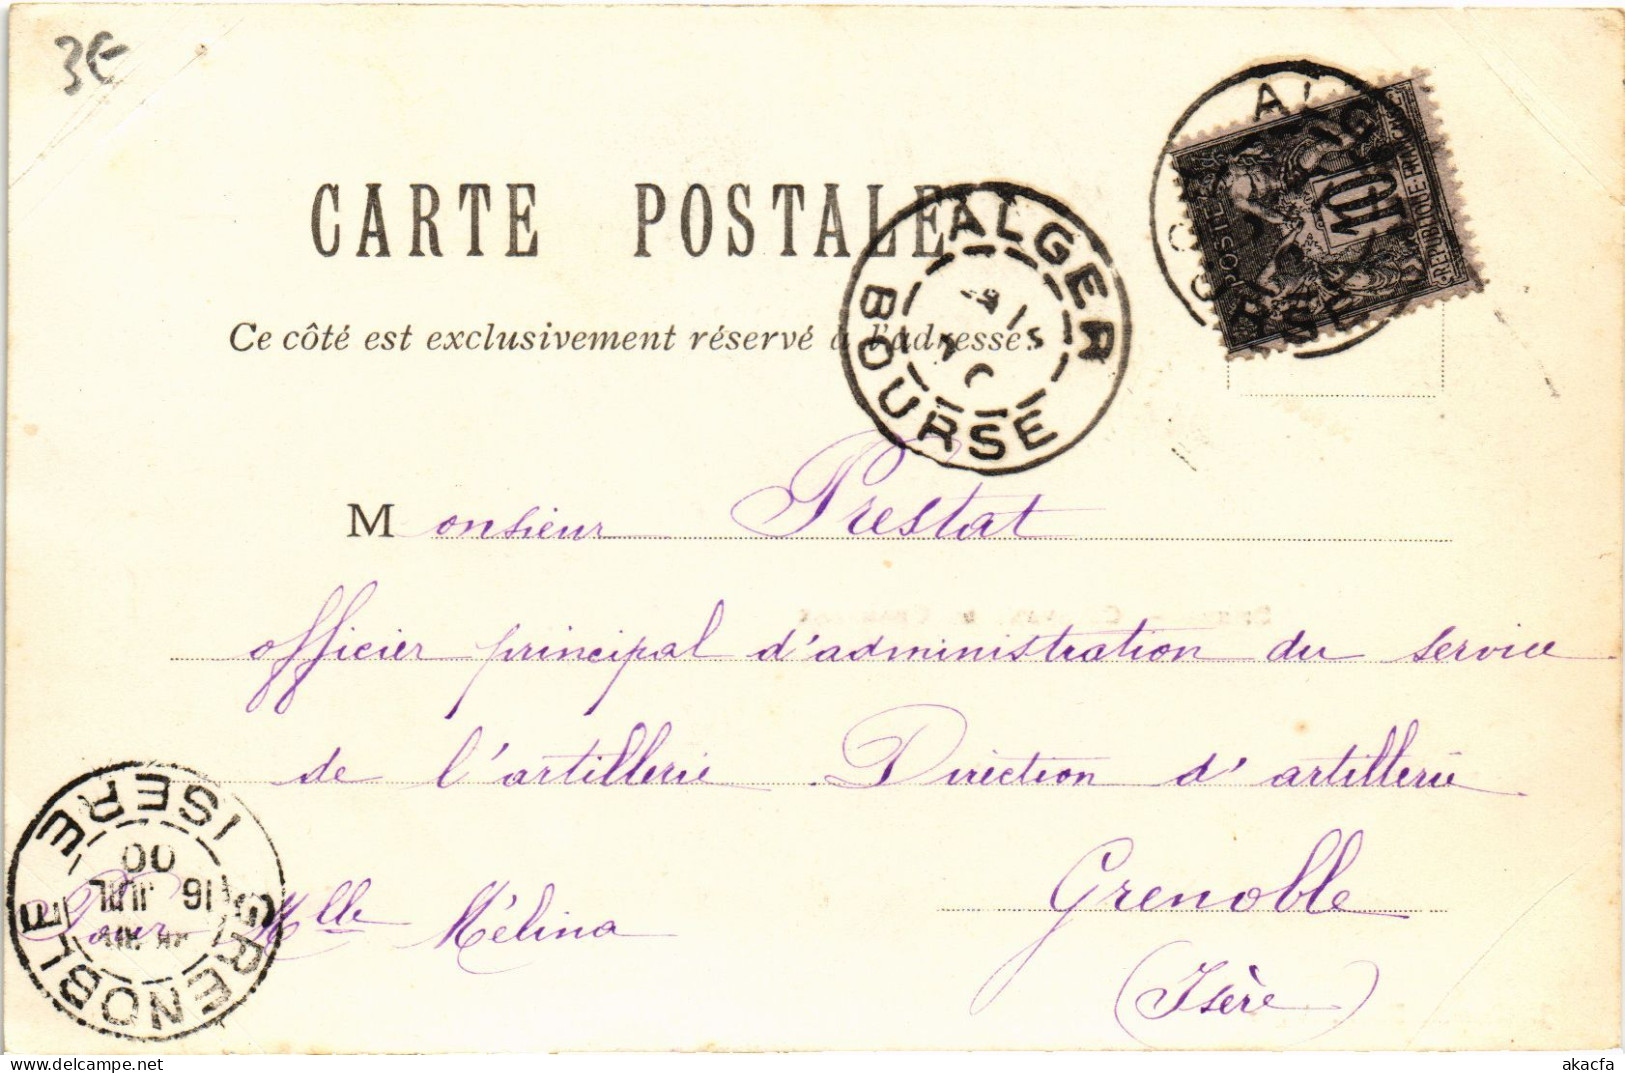 3€
CARTE POSTALE
Ce côté est exclusivement réservé à l'adresse.
ALGER
BOURSE
POSTES
10
REPUBLIQUE FRANÇAISE
Monsieur Prestat
officier principal d'administration du service
de l'artillerie. Direction d'artillerie
Grenoble
(Isère)
Pour Mlle Mélina
GRENOBLE
ISERE
16 JUIL
00
akacfa